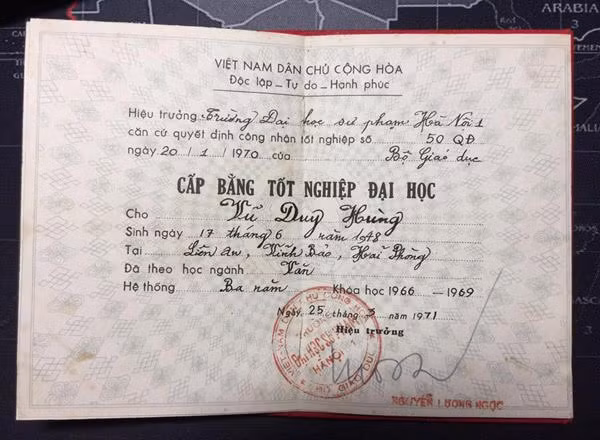 ARABIA
VIỆT NAM DÂN CHỦ CỘNG HÒA
Độc lập – Tự do – Hạnh phúc
Hiệu trưởng Trường Đại học sư phạm Hà Nội 1
căn cứ quyết định công nhân tốt nghiệp số 50 QĐ
ngày 20/1/1970 của Bộ Giáo dục
CẤP BẰNG TỐT NGHIỆP ĐẠI HỌC
Cho Vũ Duy Hùng
Sinh ngày 17 tháng 6 năm 1948
Tại Liên Am, Vĩnh Bảo, Hải Phòng
Đã theo học ngành Văn
Hệ thống Ba năm Khóa học 1966 – 1969
Ngày 25 tháng 3 năm 1971
Hiệu trưởng
HÀ NỘI 1
NGUYỄN LƯƠNG NGỌC